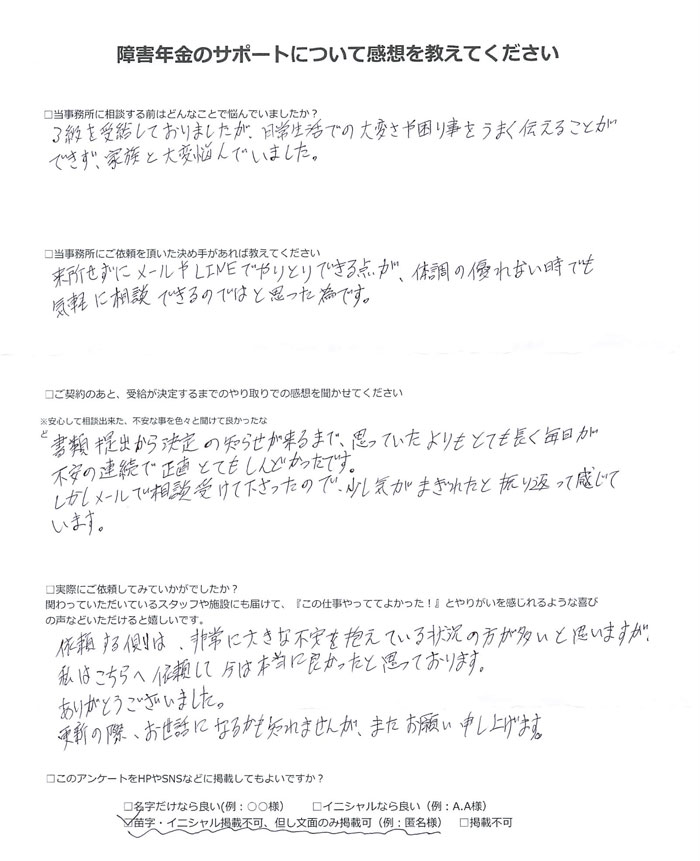 障害年金のサポートについて感想を教えてください
□当事務所に相談する前はどんなことで悩んでいましたか？
3級を受給しておりましたが、日常生活での大変さや困り事をうまく伝えることが
できず、家族と大変悩んでいました。
□当事務所にご依頼を頂いた決め手があれば教えてください
来所せずにメールやLINEでやりとりできる点が、体調の優れない時でも
気軽に相談できるのではと思った為です。
□ご契約のあと、受給が決定するまでのやり取りでの感想を聞かせてください
※安心して相談出来た、不安な事を色々と聞けて良かったな
ど
書類提出から決定の知らせが来るまで、思っていたよりもとても長く毎日が
不安の連続で正直とてもしんどかったです。
しかしメールで相談受けて下さったので、少し気がまぎれたと振り返って感じて
います。
□実際にご依頼してみていかがでしたか？
関わっていただいているスタッフや施設にも届けて、『この仕事やっててよかった！』とやりがいを感じれるような喜び
の声などいただけると嬉しいです。
依頼する側は、非常に大きな不安を抱えている状況の方が多いと思いますが、
私はこちらへ依頼して今は本当に良かったと思っております。
ありがとうございました。
更新の際、お世話になるかも知れませんが、またお願い申し上げます。
□このアンケートをHPやSNSなどに掲載してもよいですか？
□名字だけなら良い(例：○○様） □イニシャルなら良い（例：A.A様）
☑苗字・イニシャル掲載不可、但し文面のみ掲載可（例：匿名様） □掲載不可